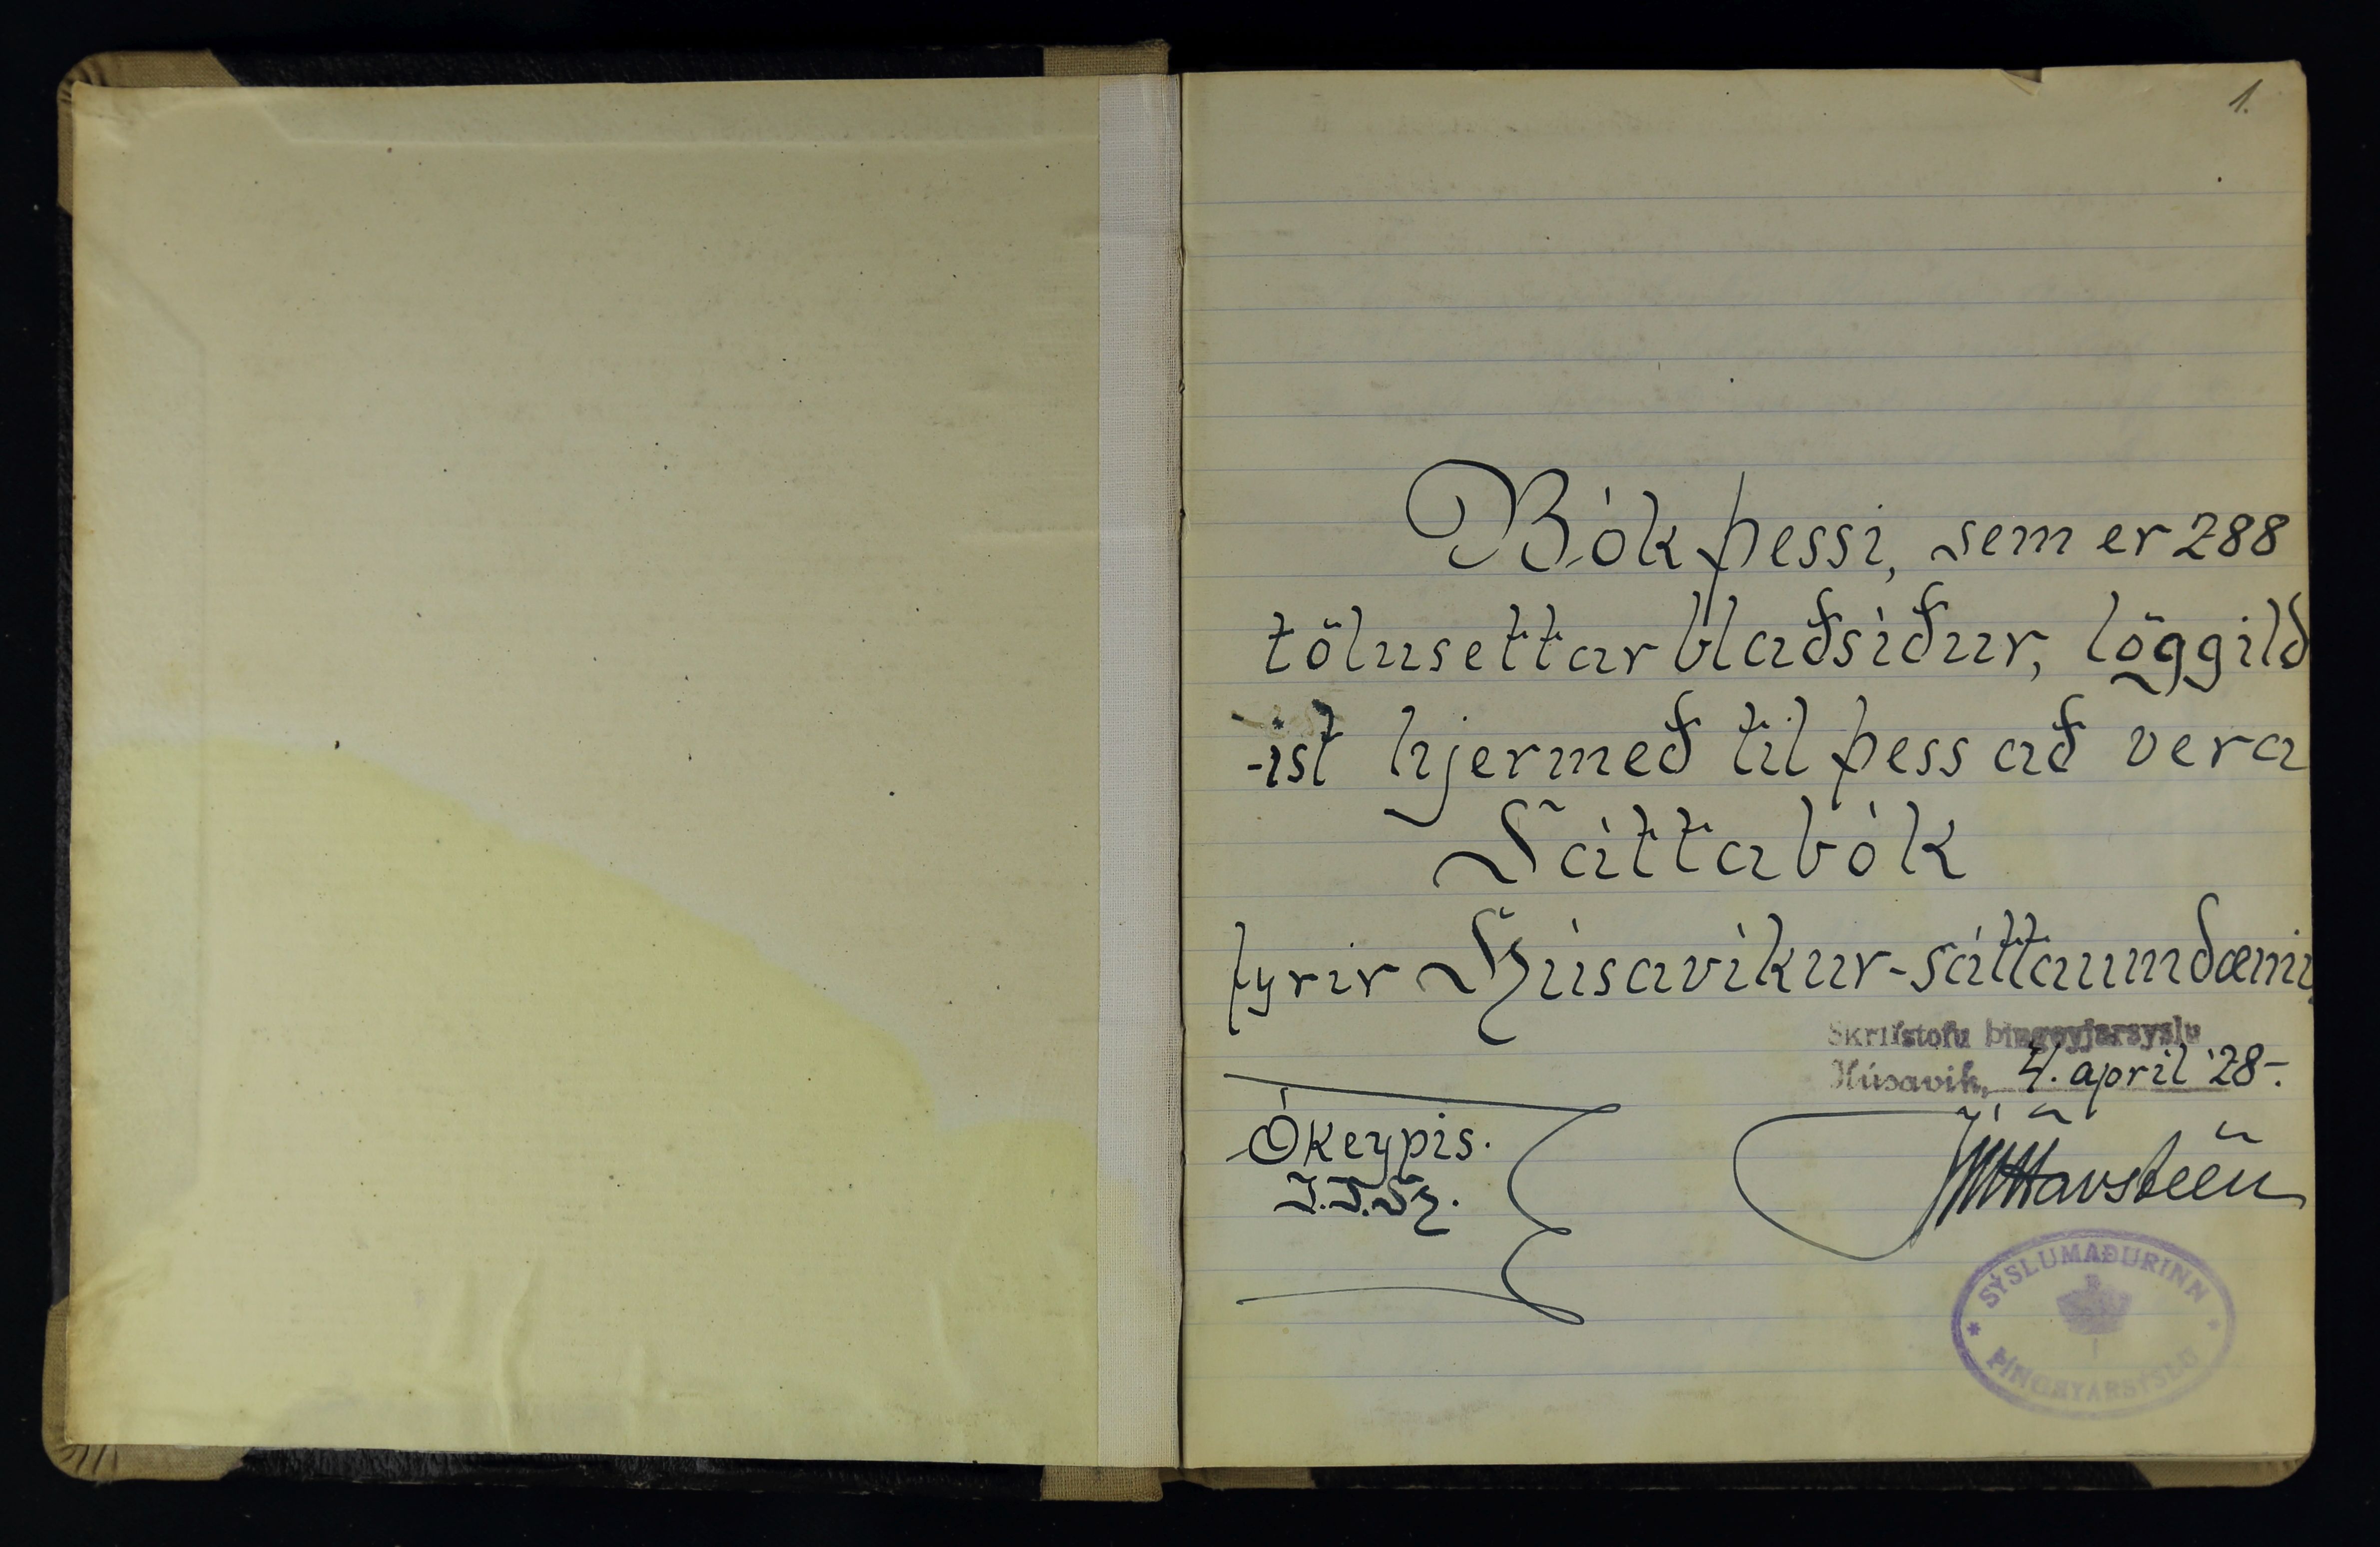 1.
Bók þessi, sem er 288
tölusettar blaðsíður, löggild
-ist hjermeð til þess að vera
Sáttabók
fyrir Húsavíkur-sáttaumdæmi,
Skrifstofu Þingeyjarsýslu
Húsavík, 4. apríl '28-.
Ókeypis.
J.J.H.
JHavsteen
SÝSLUMAÐURINN
ÞINGEYARSÝSLU